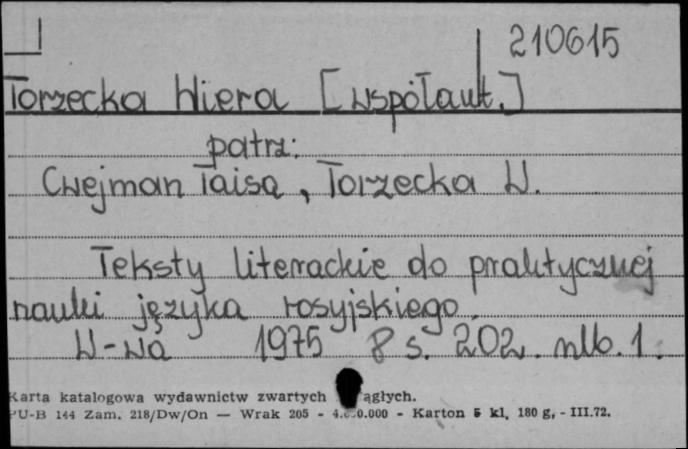 210615
Torzecka Wiera [współaut.]
patrz:
Cwejman Taisa, Torzecka W.
Teksty literackie do praktycznej
nauki języka rosyjskiego.
W-wa 1975 8 s. 202. nlb. 1.
Karta katalogowa wydawnictw zwartych ągłych.
PU-B 144 Zam. 218/Dw/On — Wrak 205 - 0.000 - Karton 5 kl, 180 g, - III.72.